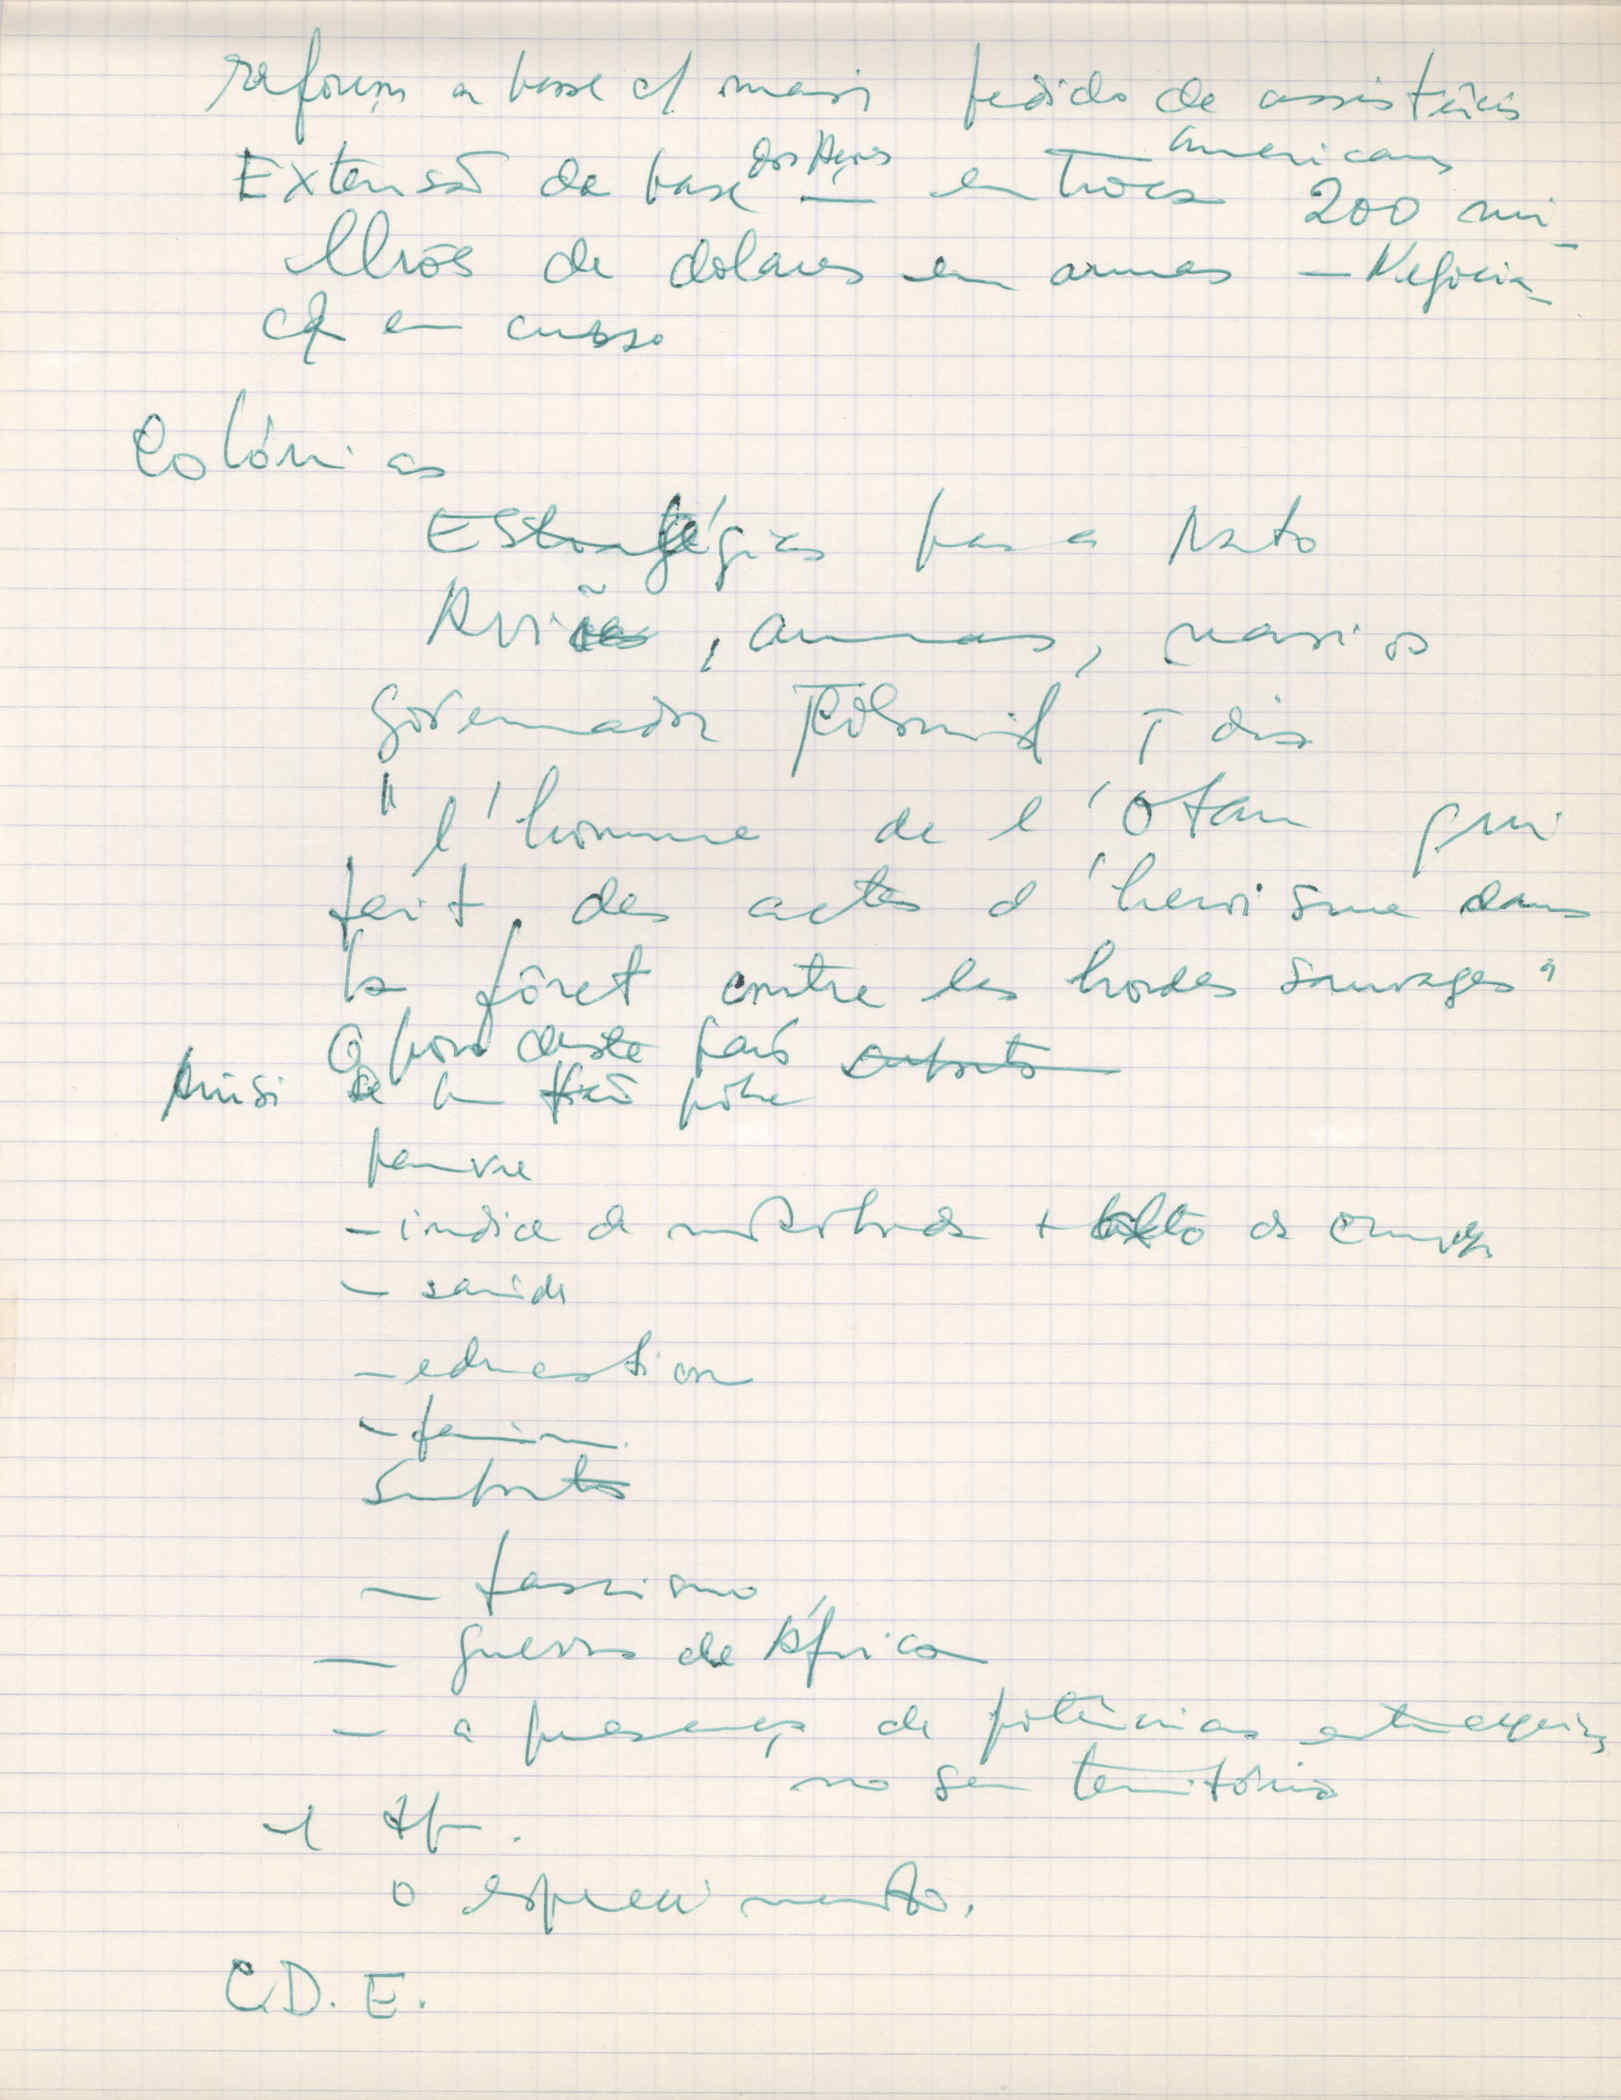 reforçar a base c/ maior pedido de assistência
Extensão da base dos Açores em troca americanos 200 mi-
lhões de dolares em armas – Negocia-
ção em curso
Colónias
Estratégias para a Nato
Aviões, armas, navios
Governador colonial diz
"l'homme de l'Otan qui
fait des actes d'heroisme dans
la fôret contre les hordes sauvages"
O povo deste país suporta
Ainsi
pauvre
– indice de mão de obra + alto da europa
– saúde
– education
– femin.
Suporta
– fascismo
– guerra de África
– a presença de potências estrangeiras
no seu território
o esquecimento.
C.D.E.